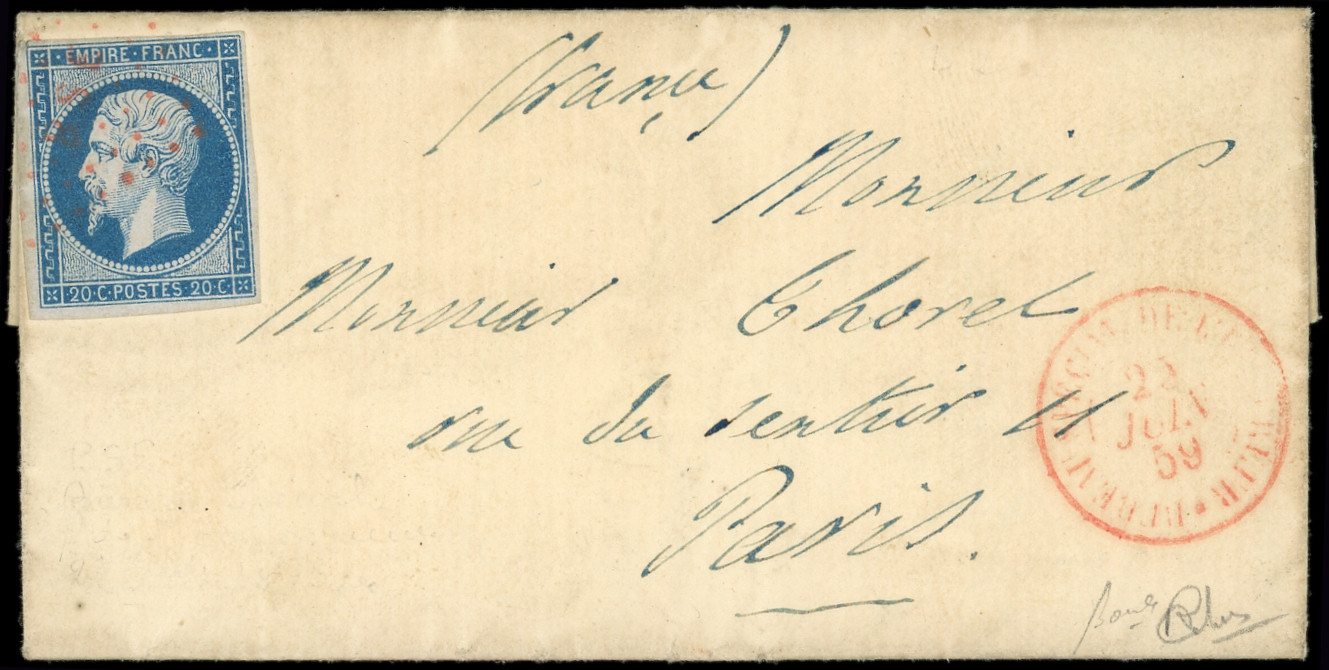 EMPIRE·FRANC·
20·C·POSTES·20·C·
(France)
Monsieur
Monsieur Thorel
rue du sentier 11
Paris.
22
JUIN
59